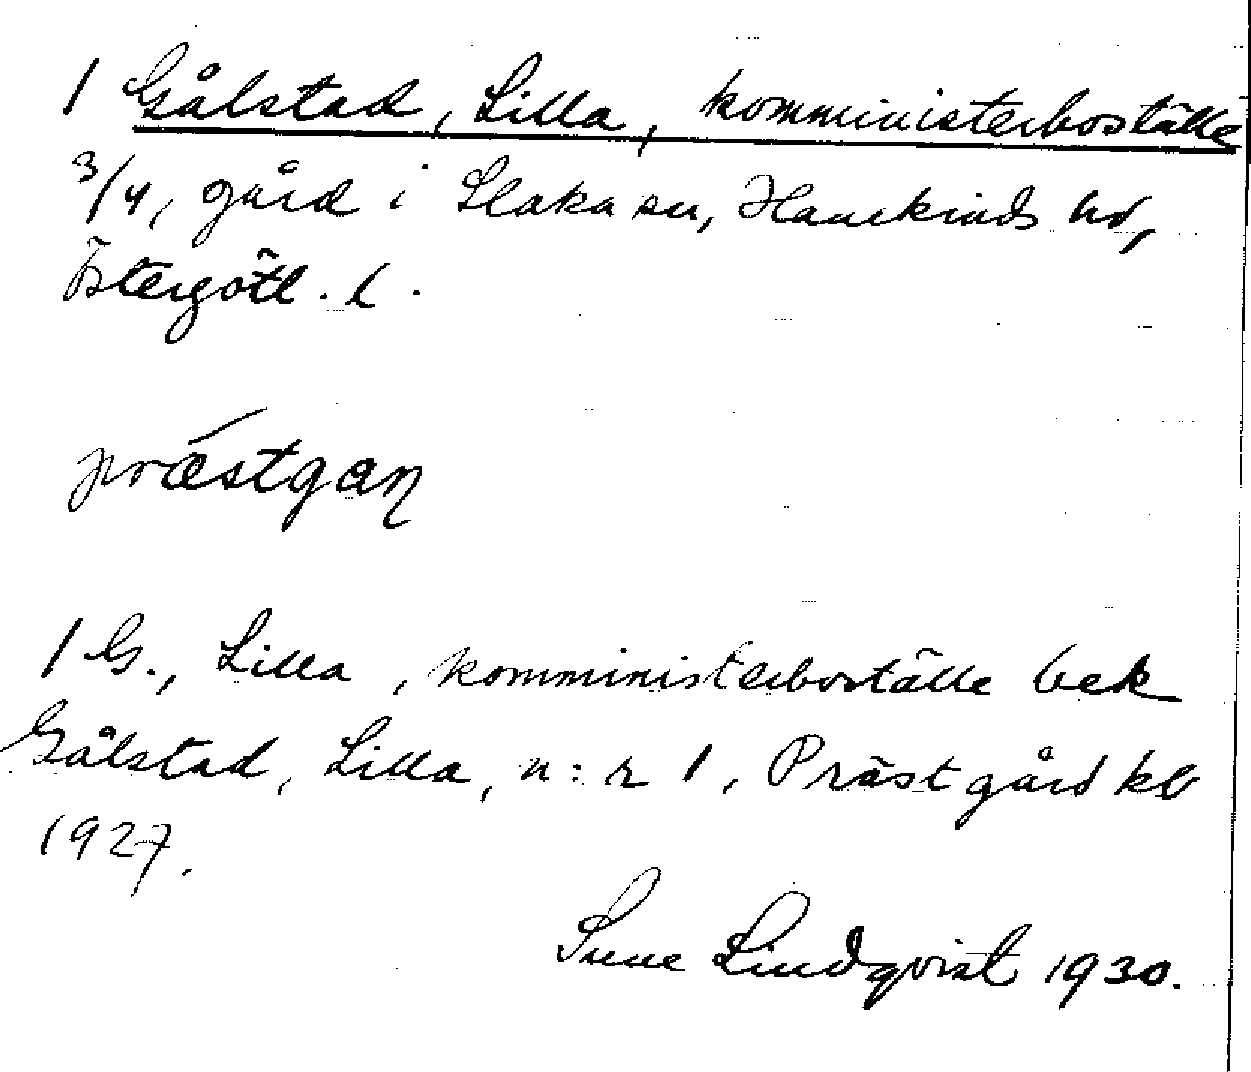 1 Gålstad, Lilla, komministerboställe
3/4, gård i Slaka sn, Hanekinds hd,
Östergötl. l.
præ´stgaɳ
1 G., Lilla, komministerboställe bek
Gålstad, Lilla, n:r 1, Prästgård kb
1927.
Sune Lindqvist 1930.